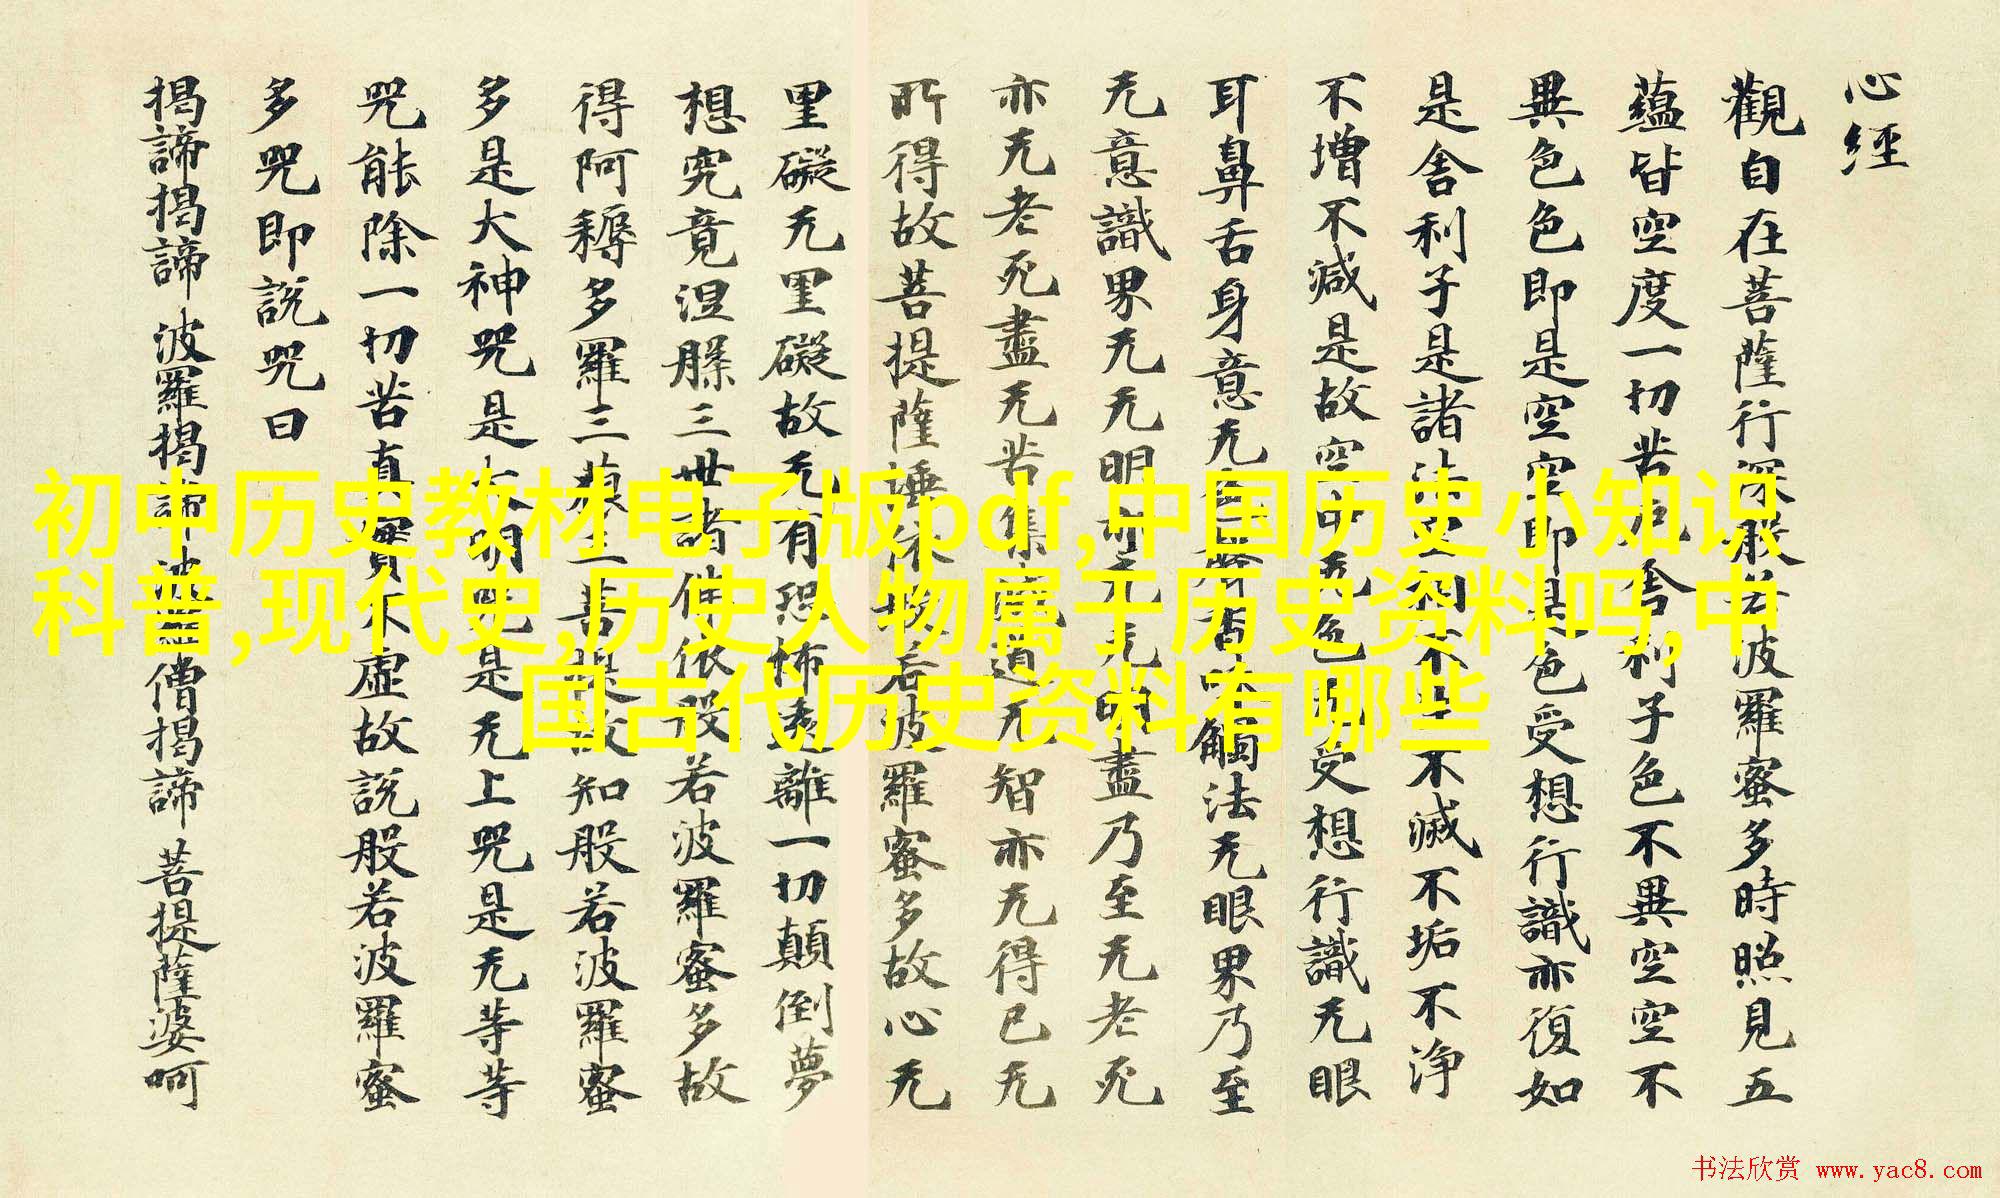 心經
觀自在菩薩行深般若波羅蜜多時照見五
蘊皆空度一切苦厄舍利子色不異空空不
異色色即是空空即是色受想行識亦復如
是舍利子是諸法空相不生不滅不垢不淨
不增不減是故空中无色无受想行識无眼
耳鼻舌身意无色聲香味觸法无眼界乃至
无意識界无无明亦无无明盡乃至无老死
亦无老死盡无苦集滅道无智亦无得已无
所得故菩提薩埵依般若波羅蜜多故心无
罣礙无罣礙故无有恐怖遠離一切顛倒夢
想究竟涅槃三世諸佛依般若波羅蜜多故
得阿耨多羅三藐三菩提故知般若波羅蜜
多是大神咒是大明咒是无上咒是无等等
咒能除一切苦真實不虛故說般若波羅蜜
多咒即說咒曰
揭諦揭諦 波羅揭諦 波羅僧揭諦 菩提薩婆呵
初中历史教材电子版pdf,中国历史小知识
科普,现代史,历史人物属于历史资料吗,中
国古代历史资料有哪些
书法欣赏 www.yac8.com